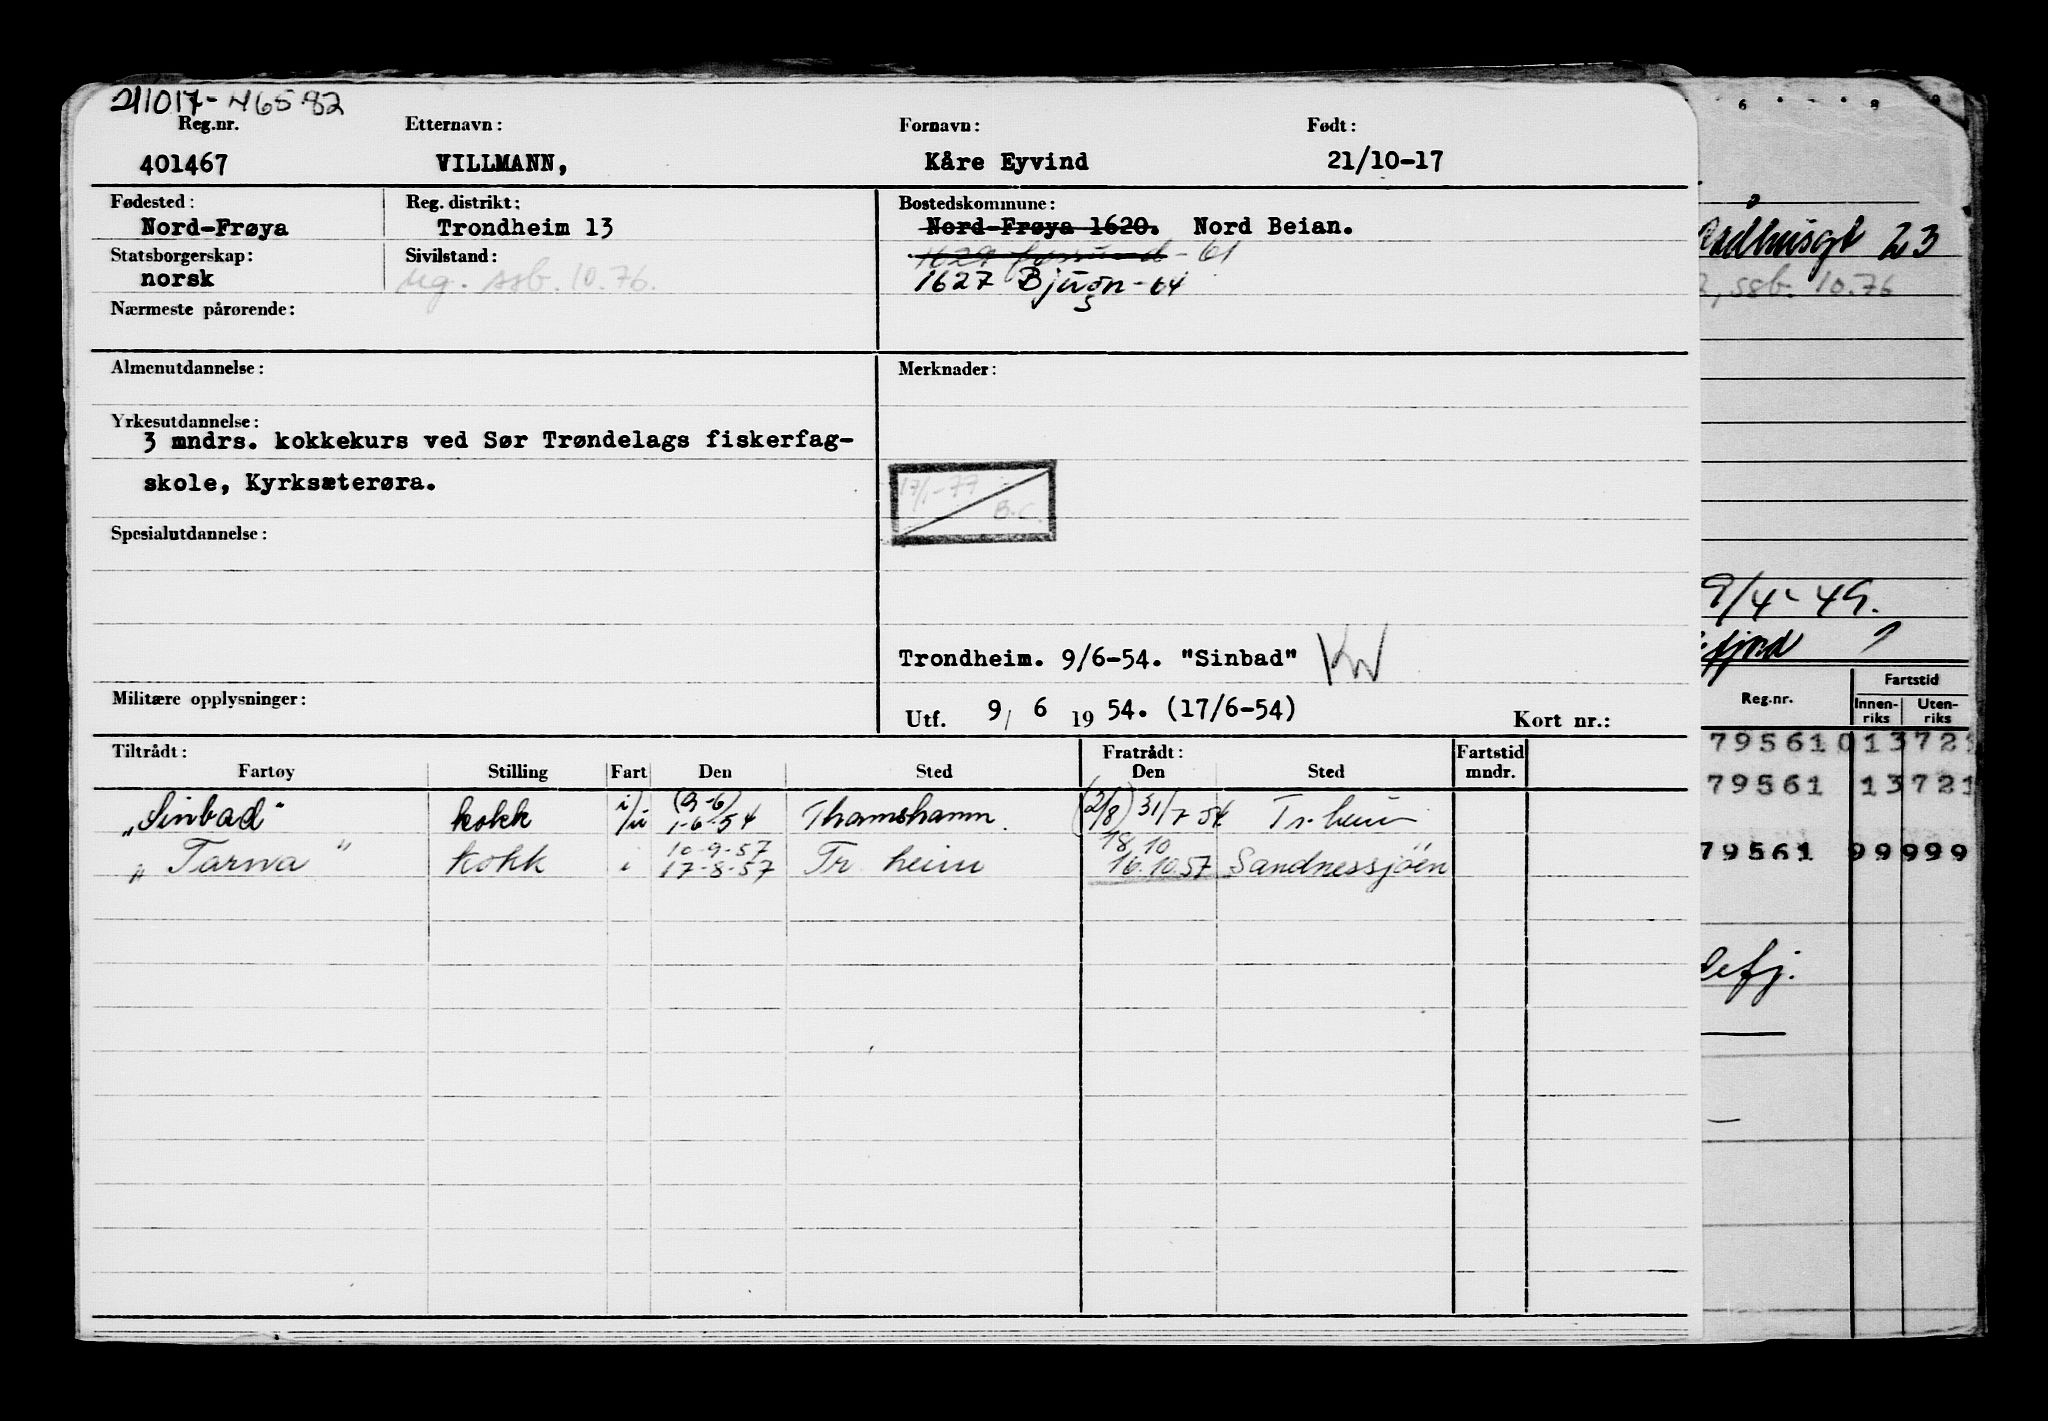 211017-46582
Reg.nr. Etternavn: Fornavn: Født:
401467 VILLMANN, Kåre Eyvind 21/10-17
Fødested: Reg. distrikt: Bostedskommune:
Nord-Frøya Trondheim 13 Nord-Frøya 1620. Nord Beian.
Statsborgerskap: Sivilstand: 1629 - 61
norsk ug. ssb. 10.76. 1627 Bjugn - 64
Nærmeste pårørende:
Almenutdannelse: Merknader:
Yrkesutdannelse:
3 mndrs. kokkekurs ved Sør Trøndelags fiskerfag-
skole, Kyrksæterøra.
17/1-77
B.C.
Spesialutdannelse:
Trondheim. 9/6-54. "Sinbad" KW
Militære opplysninger:
Utf. 9/ 6 19 54. (17/6-54) Kort nr.:
Tiltrådt: Fratrådt: Fartstid
Fartøy Stilling Fart Den Sted Den Sted mndr.
(9-6)
„Sinbad" kokk i/u 1-6-54 Thamshamn. (2/8) 31/7 54 Tr.heim
10-9-57 18 10
„Tarva" kokk i 17-8-57 Tr.heim 16.10.57 Sandnessjöen
Raadhusgt 23
, ssb. 10.76
9/4-49.
Fartstid
Reg.nr. Innen- Uten-
riks riks
795610 13721
79561 13721
79561 99999